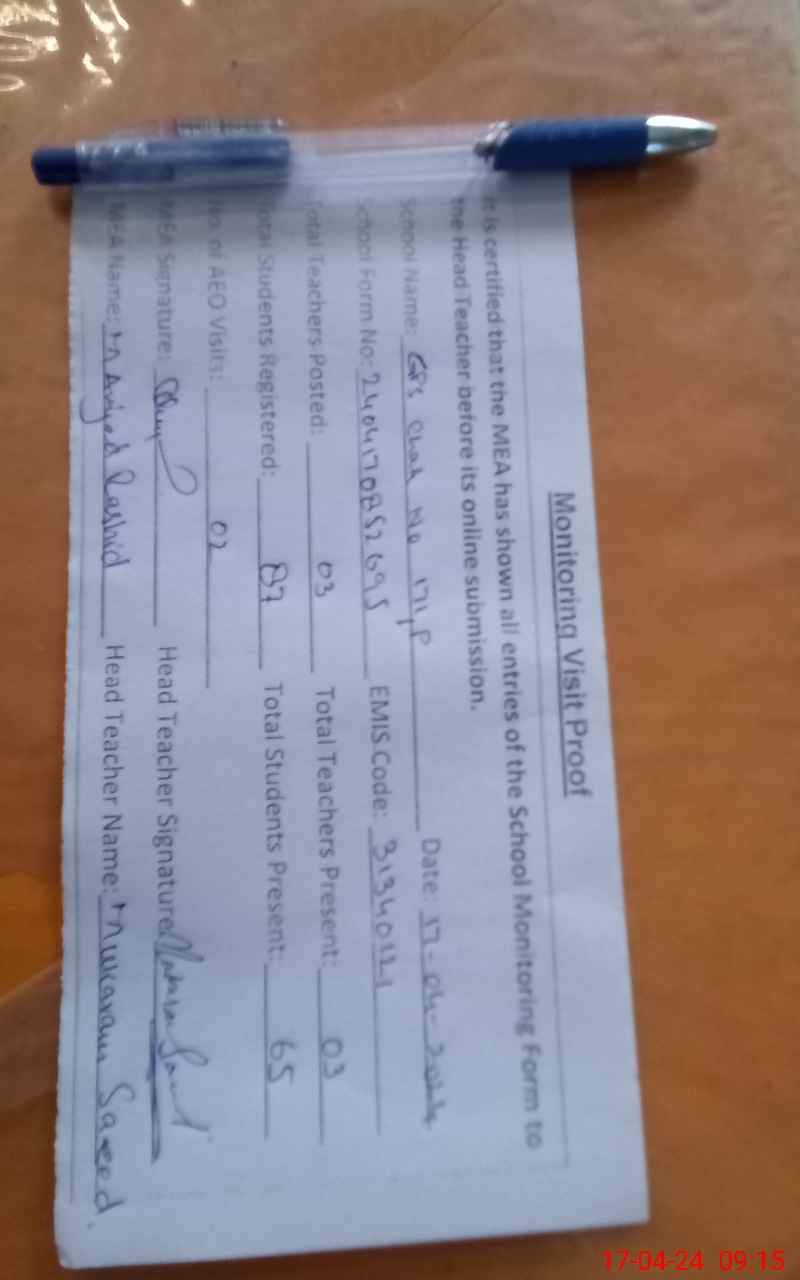 Monitoring Visit Proof
It is certified that the MEA has shown all entries of the School Monitoring Form to
the Head Teacher before its online submission.
School Name: GPS Chak No 171,P Date: 17-04-2024
School Form No: 2404170852695 EMIS Code: 31340121
Total Teachers Posted: 03 Total Teachers Present: 03
Total Students Registered: 87 Total Students Present: 65
No. of AEO Visits: 02
MEA Signature: Head Teacher Signature
MEA Name: M Amjad Rashid Head Teacher Name: Mukaram Saeed.
17-04-24 09:15